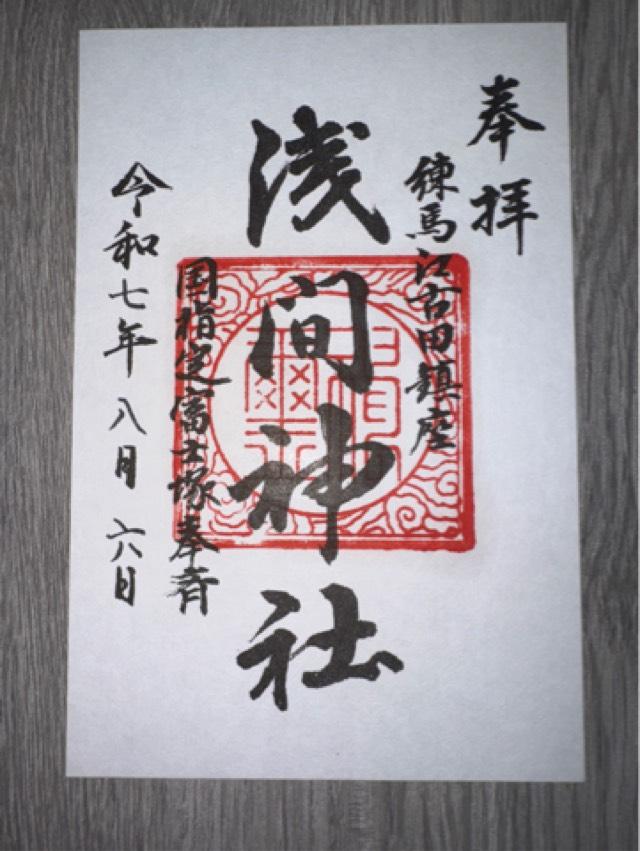 奉拝
練馬江古田鎮座
浅間神社
国指定富士塚奉斎
令和七年八月六日